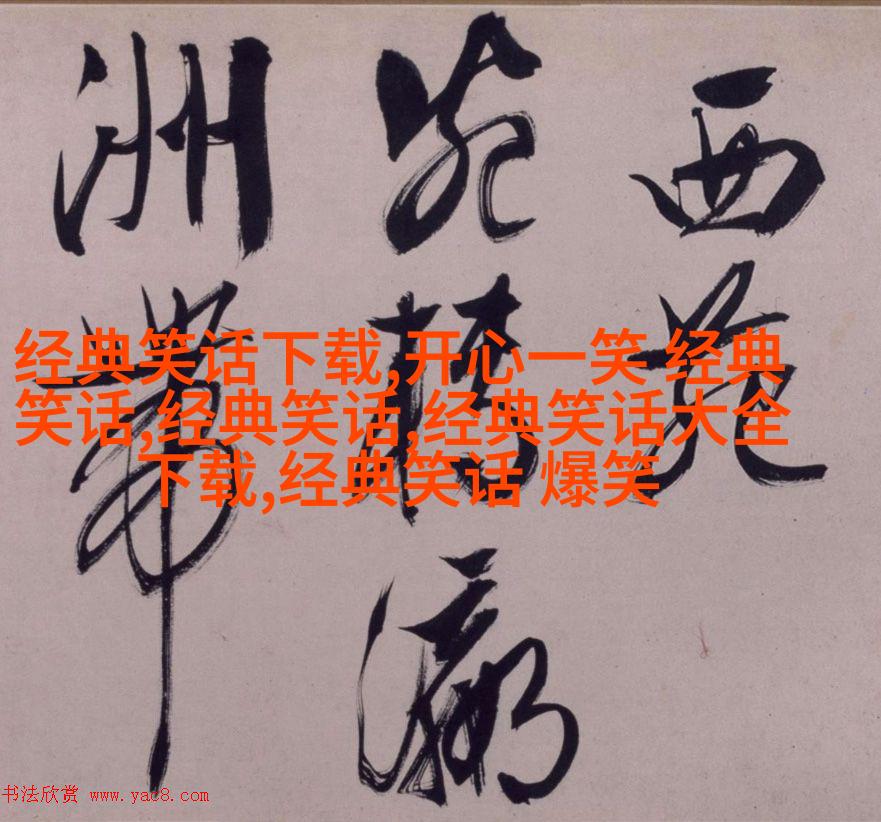 西苑
瀛
洲帶
经典笑话下载,开心一笑 经典
笑话,经典笑话,经典笑话大全
下载,经典笑话 爆笑
书法欣赏 www.yac8.com